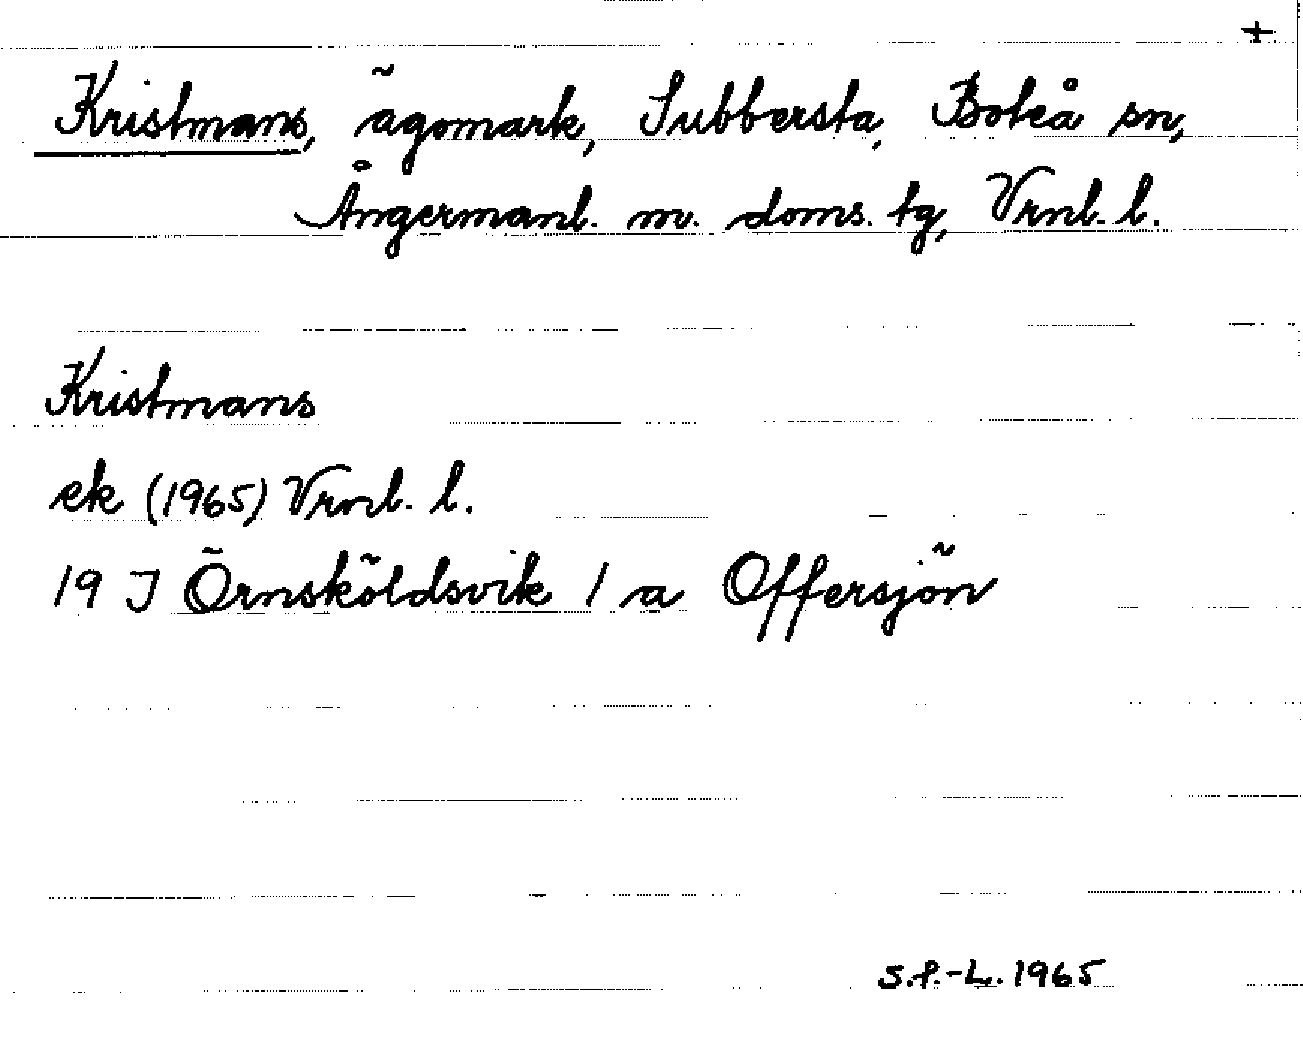 +
Kristmans, ägomark, Subbersta, Boteå sn,
Ångermanl. m. doms. tg, Vrnl. l.
Kristmans
ek (1965) Vrnl. l.
19 J Örnsköldsvik 1 a Offersjön
S.f.-L. 1965